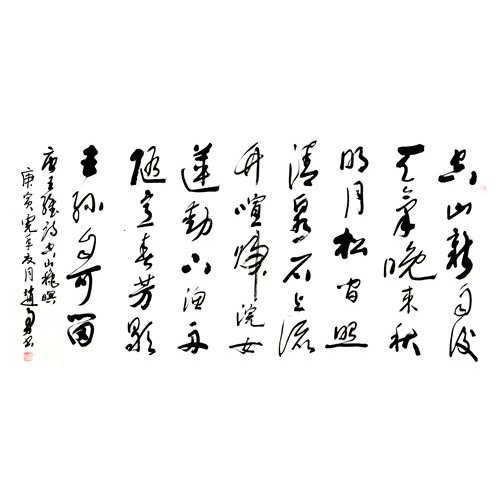 空山新雨後
天氣晚来秋
明月松间照
清泉石上流
竹喧歸浣女
蓮動下渔舟
隨意春芳歇
王孫自可留
唐王維詩山秋暝
庚寅虎年夏月趙書